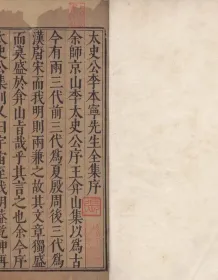 太史公李本寧先生全集序
余師京山李太史公序王弇山集以爲古
今有兩三代前三代爲夏殷周後三代爲
漢唐宋而我明則兩兼之故其文章獨盛
而莫盛於弇山旨哉乎其言之也余今序
太史公集則又曰宇宙至我明蓋乾坤再